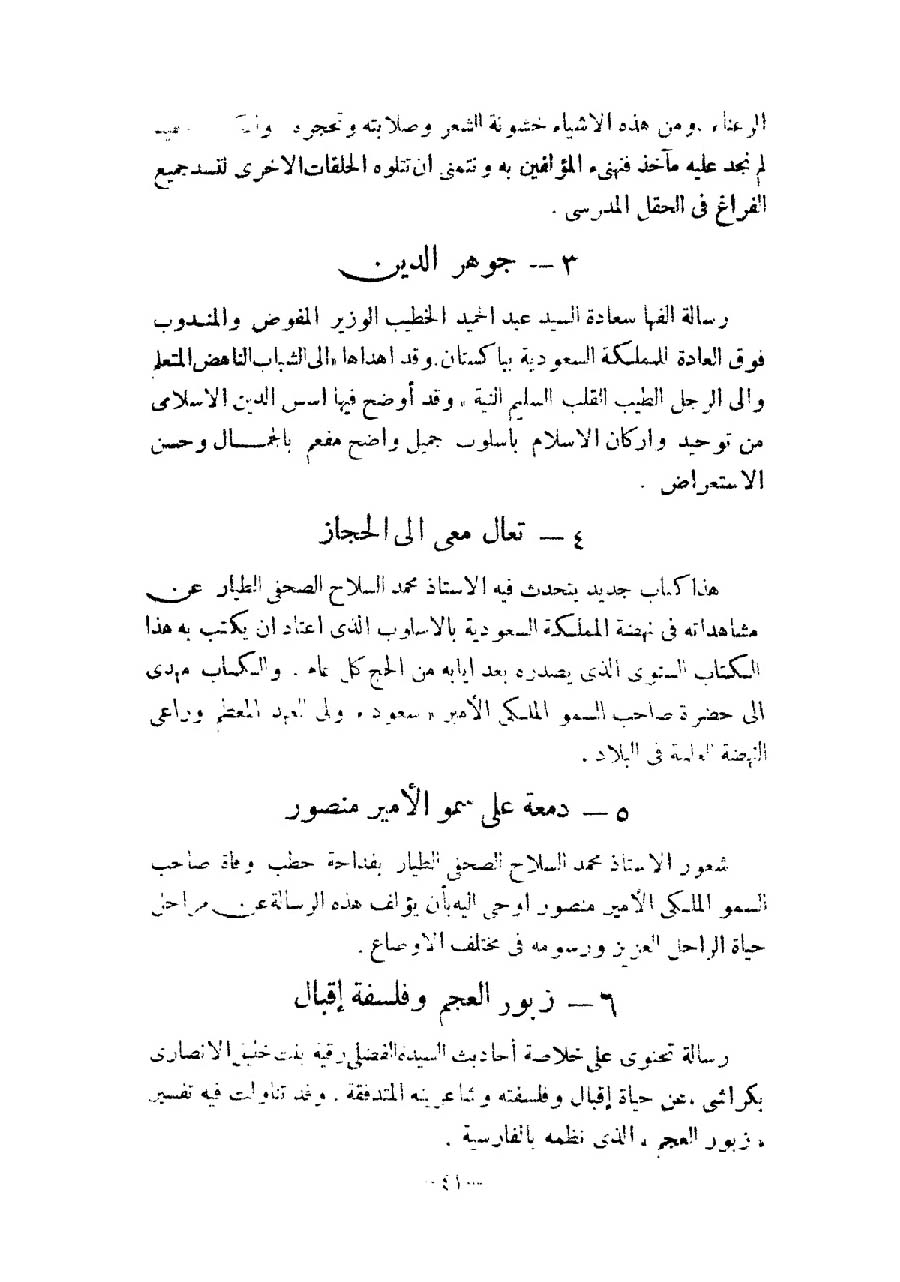 الرعناء .ومن هذه الاشياء خشونة الشعر وصلابته وتحجره
لم نجد عليه مآخذ فنهنىء المؤلفين به ونتمنى ان تتلوه الحلقات الاخرى لتسد جميع
الفراغ فى الحقل المدرسى .
٣ — جوهر الدين
رسالة الفها سعادة السيد عبد الحميد الخطيب الوزير المفوض والمندوب
فوق العادة للمملكة السعودية بباكستان.وقد اهداها «الى الشباب الناهض المتعلم
والى الرجل الطيب القلب السليم النية » وقد أوضح فيها اسس الدين الاسلامى
من توحيد واركان الاسلام بأسلوب جميل واضح مفعم بالجمال وحسن
الاستعراض .
٤ — تعال معى الى الحجاز
هذا كتاب جديد يتحدث فيه الاستاذ محمد السلاح الصحفى الطيار عن
مشاهداته فى نهضة المملكة السعودية بالاسلوب الذى اعتاد ان يكتب به هذا
الكتاب السنوى الذى يصدره بعد ايابه من الحج كل عام . والكتاب مهدى
الى حضرة صاحب السمو الملكى الأمير « سعود » ولى العهد المعظم وراعى
النهضة العلمية فى البلاد .
٥ — دمعة على سمو الأمير منصور
شعور الاستاذ محمد السلاح الصحفى الطيار بفداحة خطب وفاة صاحب
السمو الملكى الأمير منصور اوحى اليه بأن يؤلف هذه الرسالة عن مراحل
حياة الراحل العزيز ورسومه فى مختلف الاوضاع .
٦ — زبور العجم وفلسفة إقبال
رسالة تحتوى على خلاصة أحاديث السيدة الفضلى رقية بنت خليل الانصارى
بكراشى ،عن حياة إقبال وفلسفته وشاعريته المتدفقة . وقد تناولت فيه تفسير
« زبور العجم » الذى نظمه بالفارسية .
— ٤١ —